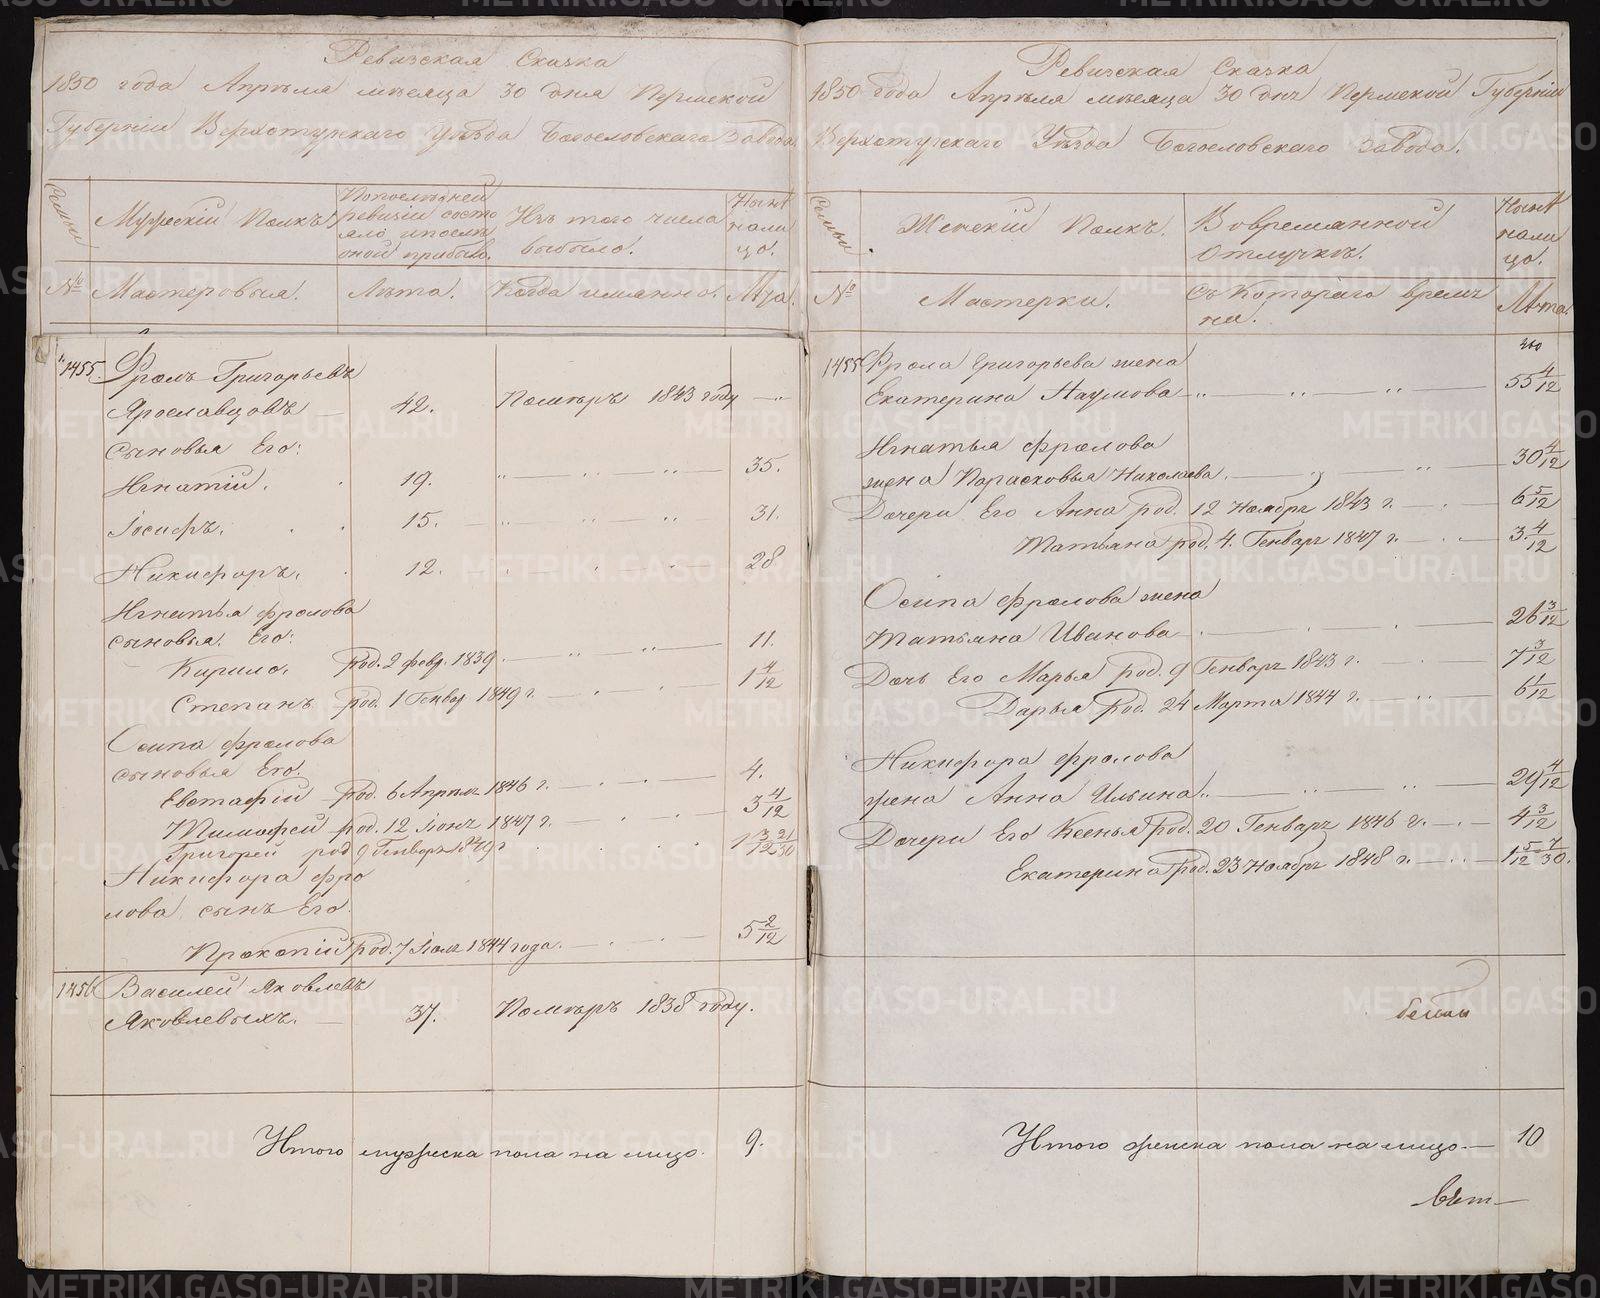 Ревизская Сказка
1850 года Апрѣля мѣсяца 30 дня Пермской
Губерніи Верхотурскаго Уѣзда Богословскаго Завода.
Семьи
Мужескій Полкъ.
По последней
ревизіи состо
яло и после
оной прибыло.
Изъ того числа
выбыло.
Нынѣ
на ли
цо.
№
Мастеровыя.
Лѣта.
Когда имянно.
Лѣта.
1455. Фролъ Григорьевъ
Ярославцовъ — 42. Помѣръ 1843 году — „
Сыновья Его:
Игнатій. 19. 35.
Іосифъ. 15. 31.
Никифоръ. 12. 28
Игнатья Фролова
сыновья Его:
Кирило. род. 2 февр. 1839. 11.
Степанъ род. 1 Генвар 1849 г. 1 4/12
Осипа Фролова
сыновья Его.
Евстафій род. 6 Апрѣля 1846 г. 4.
Тимофей род. 12 Іюнь 1847 г. 3 4/12
Григорей род 9 Генварь 1849 г 1 3/12 21/30
Никифора Фро
лова сынъ Его.
Прокопій род. 7 1844 года. 5 2/12
1456 Василей Яковлевъ
Яковлевыхъ. — 37. Помѣръ 1838 году.
Итого мужеска пола на лицо. 9.
Ревизская Сказка
1850 года Апрѣля мѣсяца 30 днъ Пермской Губерніи
Верхотурскаго Уѣзда Богословскаго Завода.
Семьи
Женскій Полкъ.
Во временной
Отлучкѣ.
Нынѣ
на ли
цо.
№
Мастерки.
Съ Котораго време
на.
Лѣта.
1455 Фрола Григорьева жена
Екатерина Наумова 55 4/12
Игнатья Фролова
жена Парасковья Николаева. 30 4/12
Дочери Его Анна род. 12 Ноябрь 1843 г. 6 5/12
Татьяна род. 4. Генварь 1847 г. 3. 4/12
Осипа Фролова жена
Татьяна Иванова 26 3/12
Дочь Его Марья род. 9 Генварь 1843 г. 7 3/12
Дарья род. 24 Марта 1844 г. 6 1/12
Никифора Фролова
жена Анна Ильина. 29 4/12
Дочери Его Ксенья род. 20 Генварь 1846 г. 4 3/12
Екатерина род. 23 Ноябрь 1848 г. 1 5/12 7/30.
Итого женска пола на лицо. — 10
METRIKI.GASO-URAL.RU